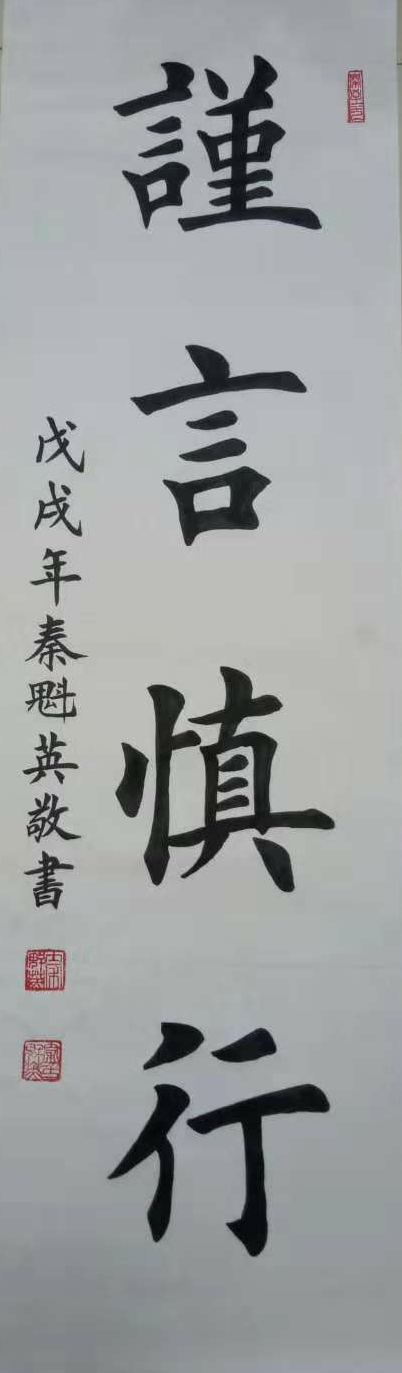 謹言慎行
戊戌年秦魁英敬書